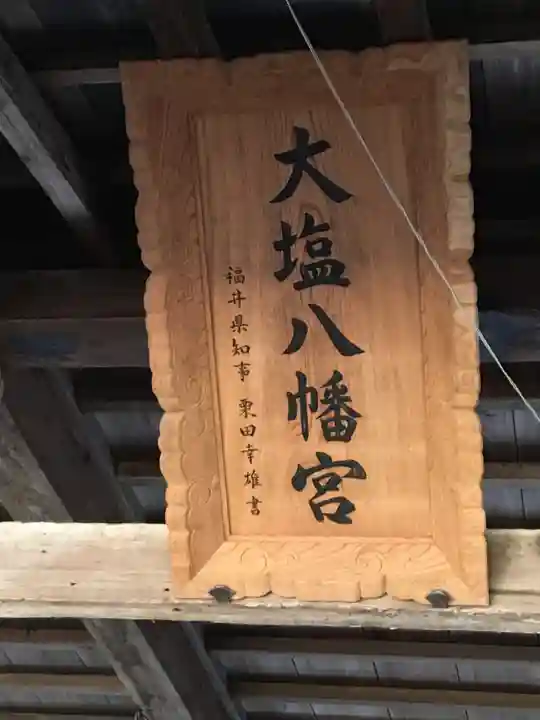 大塩八幡宮
福井県知事 栗田幸雄書